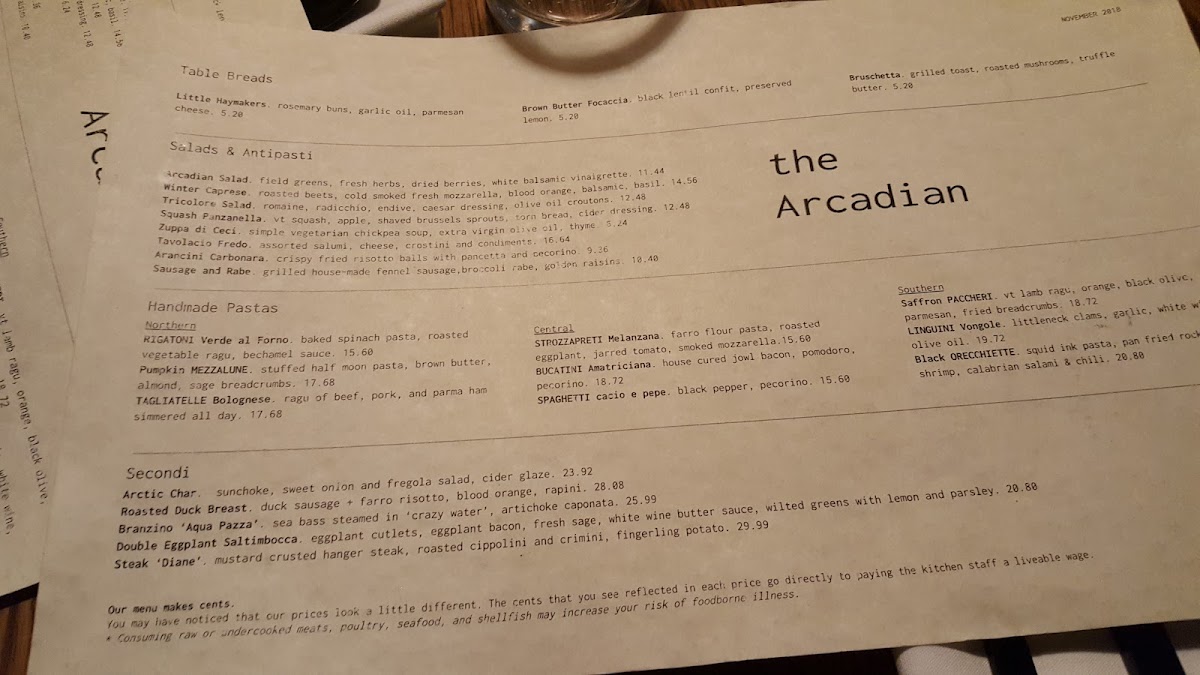 NOVEMBER 2018
Table Breads
Little Haymakers. rosemary buns, garlic oil, parmesan
cheese. 5.20
Brown Butter Focaccia. black lentil confit, preserved
lemon. 5.20
Bruschetta. grilled toast, roasted mushrooms, truffle
butter. 5.20
the
Arcadian
Salads & Antipasti
Arcadian Salad. field greens, fresh herbs, dried berries, white balsamic vinaigrette. 11.44
Winter Caprese. roasted beets, cold smoked fresh mozzarella, blood orange, balsamic, basil. 14.56
Tricolore Salad. romaine, radicchio, endive, caesar dressing, olive oil croutons. 12.48
Squash Panzanella. vt squash, apple, shaved brussels sprouts, torn bread, cider dressing. 12.48
Zuppa di Ceci. simple vegetarian chickpea soup, extra virgin olive oil, thyme.
Tavolacio Fredo. assorted salumi, cheese, crostini and condiments. 16.64
Arancini Carbonara. crispy fried risotto balls with pancetta and pecorino. 9.36
Sausage and Rabe. grilled house-made fennel sausage,broccoli rabe, golden raisins. 10.40
Handmade Pastas
Northern
RIGATONI Verde al Forno. baked spinach pasta, roasted
vegetable ragu, bechamel sauce. 15.60
Pumpkin MEZZALUNE. stuffed half moon pasta, brown butter,
almond, sage breadcrumbs. 17.68
TAGLIATELLE Bolognese. ragu of beef, pork, and parma ham
simmered all day. 17.68
Central
STROZZAPRETI Melanzana. farro flour pasta, roasted
eggplant, jarred tomato, smoked mozzarella.15.60
BUCATINI Amatriciana. house cured jowl bacon, pomodoro,
pecorino. 18.72
SPAGHETTI cacio e pepe. black pepper, pecorino. 15.60
Southern
Saffron PACCHERI. vt lamb ragu, orange, black olive,
parmesan, fried breadcrumbs. 18.72
LINGUINI Vongole. littleneck clams, garlic, white
olive oil. 19.72
Black ORECCHIETTE. squid ink pasta, pan fried rock
shrimp, calabrian salami & chili. 20.80
Secondi
Arctic Char. sunchoke, sweet onion and fregola salad, cider glaze. 23.92
Roasted Duck Breast. duck sausage + farro risotto, blood orange, rapini. 28.08
Branzino 'Aqua Pazza'. sea bass steamed in 'crazy water', artichoke caponata. 25.99
Double Eggplant Saltimbocca. eggplant cutlets, eggplant bacon, fresh sage, white wine butter sauce, wilted greens with lemon and parsley. 20.80
Steak 'Diane'. mustard crusted hanger steak, roasted cippolini and crimini, fingerling potato. 29.99
Our menu makes cents.
You may have noticed that our prices look a little different. The cents that you see reflected in each price go directly to paying the kitchen staff a liveable wage.
* Consuming raw or undercooked meats, poultry, seafood, and shellfish may increase your risk of foodborne illness.
Southern
vt lamb ragu, orange, black olive,
18.72
white wine,